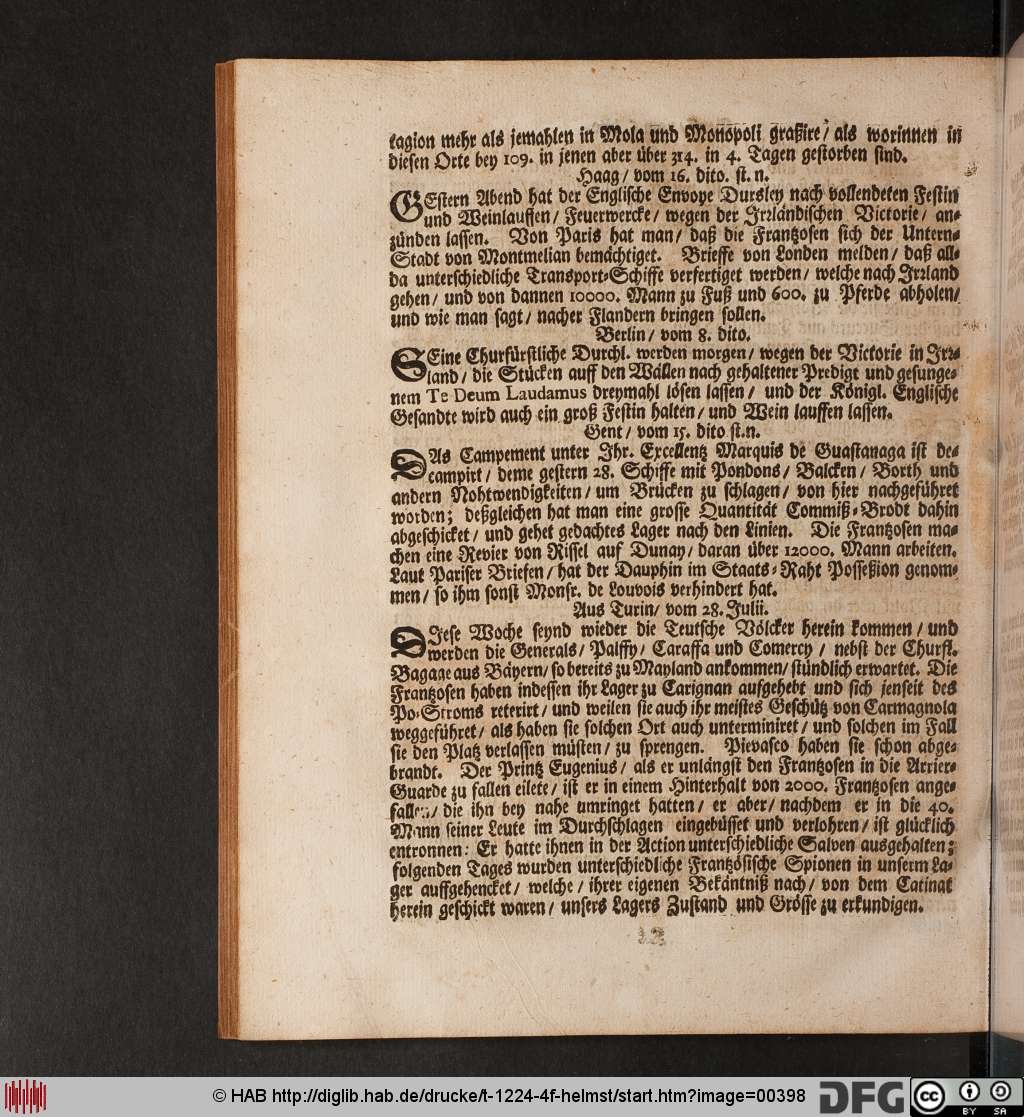 tagion mehr als jemahlen in Mola und Monopoli graßire/ als worinnen in
diesen Orte bey 109. in jenen aber über 314. in 4. Tagen gestorben sind.
Haag/ vom 16. dito. st. n.
GEstern Abend hat der Englische Envoye Dursley nach vollendeten Festin
und Weinlauffen/ Feuerwercke/ wegen der Irrländischen Victorie/ an-
zünden lassen. Von Paris hat man/ daß die Frantzosen sich der Untern-
Stadt von Montmelian bemächtiget. Brieffe von Londen melden/ daß all-
da unterschiedliche Transport-Schiffe verfertiget werden/ welche nach Irrland
gehen/ und von dannen 10000. Mann zu Fuß und 600. zu Pferde abholen/
und wie man sagt/ nacher Flandern bringen sollen.
Berlin/ vom 8. dito.
SEine Churfürstliche Durchl. werden morgen/ wegen der Victorie in Irr-
land/ die Stücken auff den Wällen nach gehaltener Predigt und gesunge-
nem Te Deum Laudamus dreymahl lösen lassen/ und der Königl. Englische
Gesandte wird auch ein groß Festin halten/ und Wein lauffen lassen.
Gent/ vom 15. dito st.n.
DAs Campement unter Ihr. Excellentz Marquis de Guastanaga ist de-
campirt/ deme gestern 28. Schiffe mit Pondons/ Balcken/ Borth und
andern Nohtwendigkeiten/ um Brücken zu schlagen/ von hier nachgeführet
worden; deßgleichen hat man eine grosse Quantität Commiß-Brodt dahin
abgeschicket/ und gehet gedachtes Lager nach den Linien. Die Frantzosen ma-
chen eine Revier von Rissel auf Dunay/ daran über 12000. Mann arbeiten.
Laut Pariser Briefen/ hat der Dauphin im Staats-Raht Posseßion genom-
men/ so ihm sonst Monsr. de Louvois verhindert hat.
Aus Turin/ vom 28. Julii.
DIese Woche seynd wieder die Teutsche Völcker herein kommen/ und
werden die Generals/ Palffy/ Caraffa und Comercy/ nebst der Churfl.
Bagage aus Bäyern/ so bereits zu Mayland ankommen/ stündlich erwartet. Die
Frantzosen haben indessen ihr Lager zu Carignan aufgehebt und sich jenseit des
Po-Stroms reterirt/ und weilen sie auch ihr meistes Geschütz von Carmagnola
weggeführet/ als haben sie solchen Ort auch unterminiret/ und solchen im Fall
sie den Platz verlassen müsten/ zu sprengen. Pievasco haben sie schon abge-
brandt. Der Printz Eugenius/ als er unlängst den Frantzosen in die Arrier-
Guarde zu fallen eilete/ ist er in einem Hinterhalt von 2000. Frantzosen ange-
fallen/ die ihn bey nahe umringet hatten/ er aber/ nachdem er in die 40.
Mann seiner Leute im Durchschlagen eingebüsset und verlohren/ ist glücklich
entronnen: Er hatte ihnen in der Action unterschiedliche Salven ausgehalten;
folgenden Tages wurden unterschiedliche Frantzösische Spionen in unserm La-
ger auffgehencket/ welche/ ihrer eigenen Bekäntniß nach/ von dem Catinat
herein geschickt waren/ unsers Lagers Zustand und Grösse zu erkundigen.
© HAB http://diglib.hab.de/drucke/t-1224-4f-helmst/start.htm?image=00398
DFG
cc
BY SA